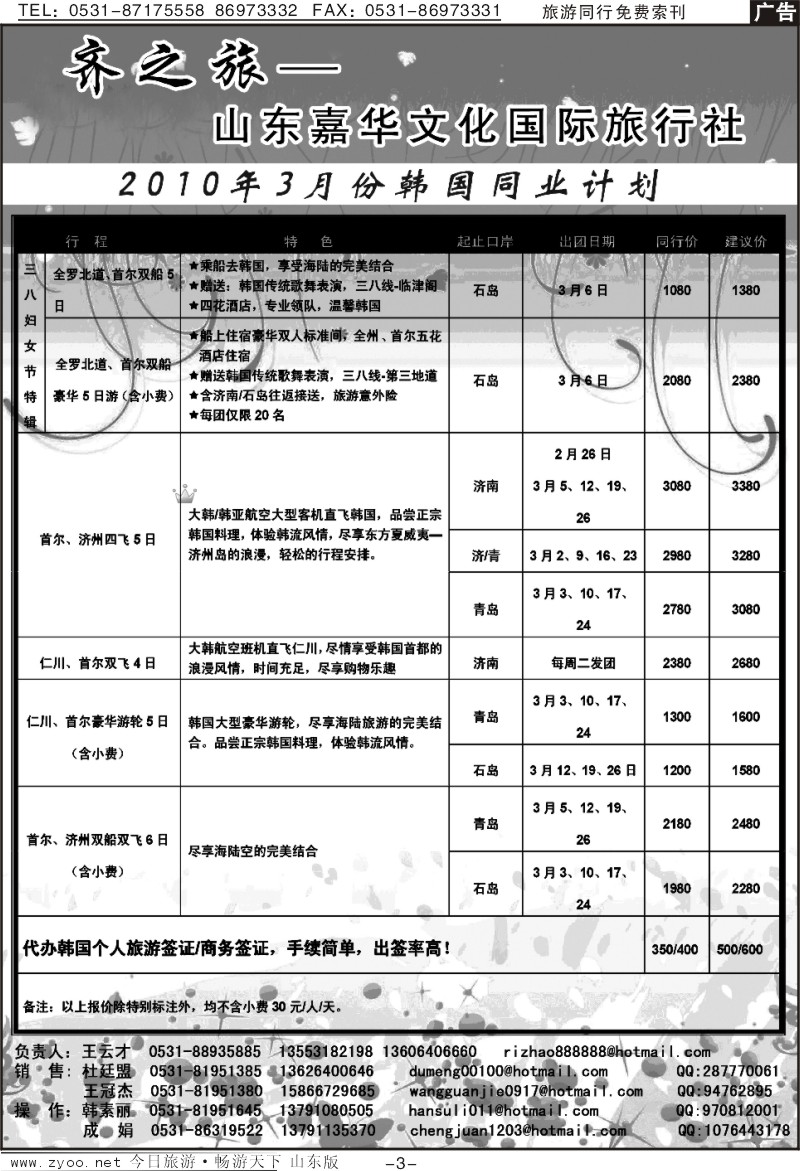 TEL: 0531-87175558 86973332 FAX: 0531-86973331 旅游同行免费索刊 广告
齐之旅—
山东嘉华文化国际旅行社
2010年3月份韩国同业计划
行 程 特 色 起止口岸 出团日期 同行价 建议价
三八妇女节特辑
全罗北道、首尔双船 5
日
★乘船去韩国，享受海陆的完美结合
★赠送：韩国传统歌舞表演，三八线-临津阁
★四花酒店，专业领队，温馨韩国
石岛 3 月 6 日 1080 1380
全罗北道、首尔双船
豪华 5 日游（含小费）
★船上住宿豪华双人标准间，全州、首尔五花
酒店住宿
★赠送韩国传统歌舞表演，三八线-第三地道
★含济南/石岛往返接送，旅游意外险
★每团仅限 20 名
石岛 3 月 6 日 2080 2380
首尔、济州四飞 5 日
大韩/韩亚航空大型客机直飞韩国，品尝正宗
韩国料理，体验韩流风情，尽享东方夏威夷—
济州岛的浪漫，轻松的行程安排。
济南
2 月 26 日
3 月 5、12、19、
26
3080 3380
济/青 3 月 2、9、16、23 2980 3280
青岛
3 月 3、10、17、
24
2780 3080
仁川、首尔双飞 4 日
大韩航空班机直飞仁川，尽情享受韩国首都的
浪漫风情，时间充足，尽享购物乐趣
济南 每周二发团 2380 2680
仁川、首尔豪华游轮 5 日
（含小费）
韩国大型豪华游轮，尽享海陆旅游的完美结
合。品尝正宗韩国料理，体验韩流风情。
青岛
3 月 3、10、17、
24
1300 1600
石岛 3 月 12、19、26 日 1200 1580
首尔、济州双船双飞 6 日
（含小费）
尽享海陆空的完美结合
青岛
3 月 5、12、19、
26
2180 2480
石岛
3 月 3、10、17、
24
1980 2280
代办韩国个人旅游签证/商务签证，手续简单，出签率高！ 350/400 500/600
备注：以上报价除特别标注外，均不含小费 30 元/人/天。
负责人：王云才 0531-88935885 13553182198 13606406660 rizhao888888@hotmail.com
销 售：杜廷盟 0531-81951385 13626400646 dumeng00100@hotmail.com QQ:287770061
王冠杰 0531-81951380 15866729685 wangguanjie0917@hotmail.com QQ:94762895
操 作：韩素丽 0531-81951645 13791080505 hansuli011@hotmail.com QQ:970812001
成 娟 0531-86319522 13791135370 chengjuan1203@hotmail.com QQ:1076443178
www.zyoo.net 今日旅游·畅游天下 山东版 -3-